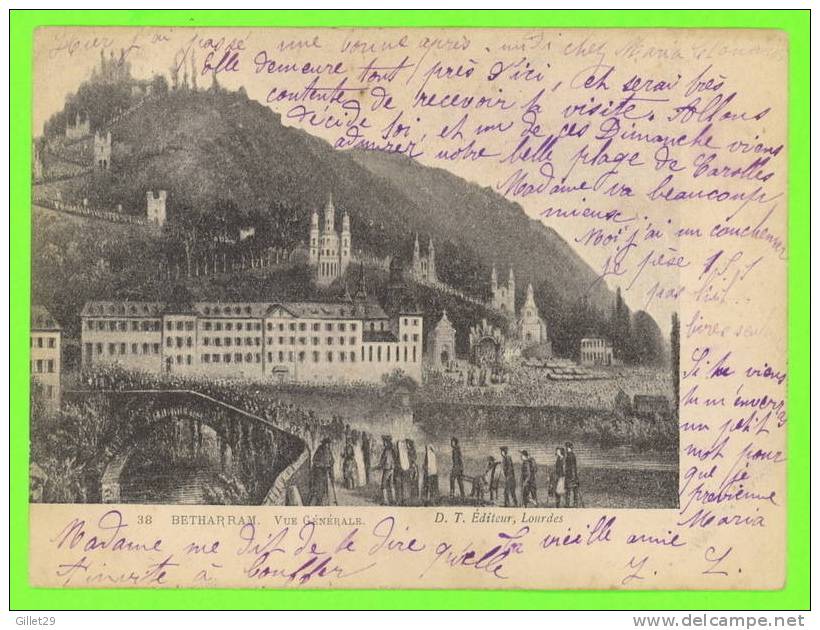 Hier j'ai passé une bonne après-midi chez Maria
Elle demeure tout près d'ici, et serai très
contente de recevoir ta visite. Allons
décide toi, et un de ces Dimanche viens
admirer notre belle plage de Carolles
Madame va beaucoup
mieux.
Moi j'ai un
je pèse
pas
livres
Si tu viens
tu m'enverras
un petit
mot pour
que je
previenne
Maria
38 BETHARRAM. VUE GÉNÉRALE.
D. T. Éditeur, Lourdes
Madame me dit de te dire qu'elle
t'invite à
Ta vieille amie
Y. L.
Gillet29
http://www.delcampe.net